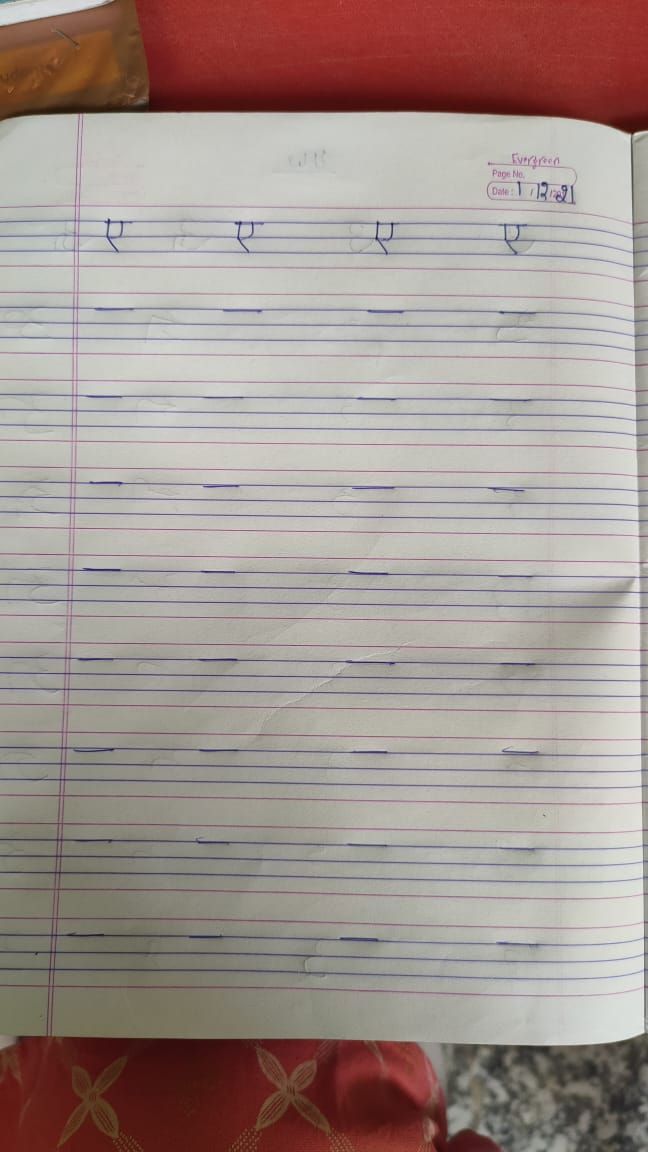 Evergreen
Page No.
Date: 1 12 21
ए ए ए ए